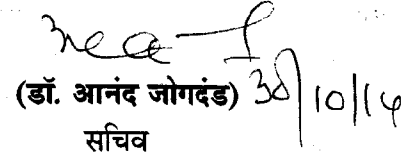 (डॉ. आनंद जोगदंड) 30/10/14
सचिव